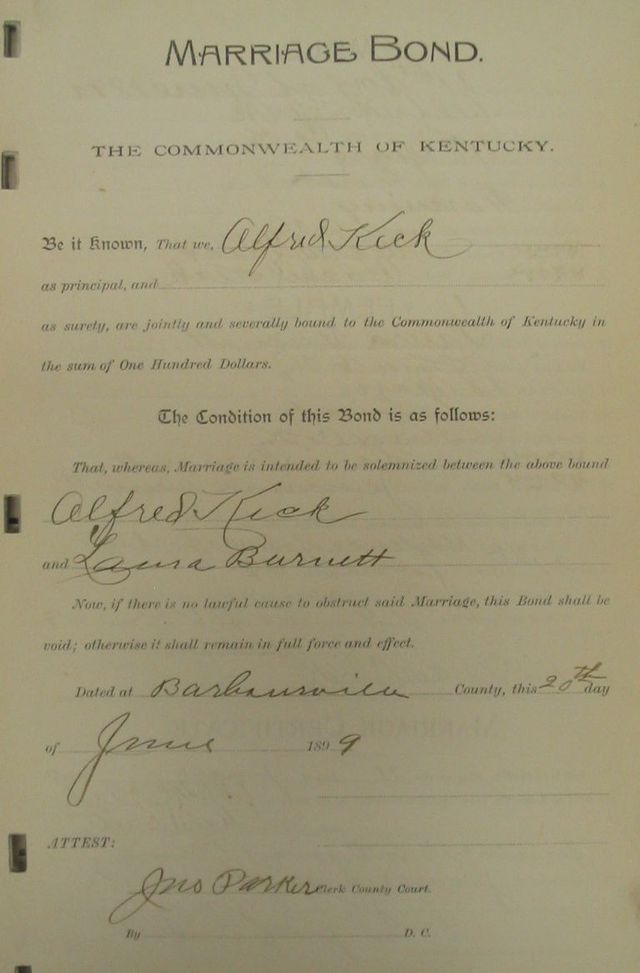 MARRIAGE BOND.
THE COMMONWEALTH OF KENTUCKY.
Be it Known, That we, Alfred Keck
as principal, and
as surety, are jointly and severally bound to the Commonwealth of Kentucky in
the sum of One Hundred Dollars.
The Condition of this Bond is as follows:
That, whereas, Marriage is intended to be solemnized between the above bound
Alfred Keck
and Laura Burnett
Now, if there is no lawful cause to obstruct said Marriage, this Bond shall be
void; otherwise it shall remain in full force and effect.
Dated at Barbourville County, this 20th day
of June 1899
ATTEST:
Jno Parker Clerk County Court.
By D. C.